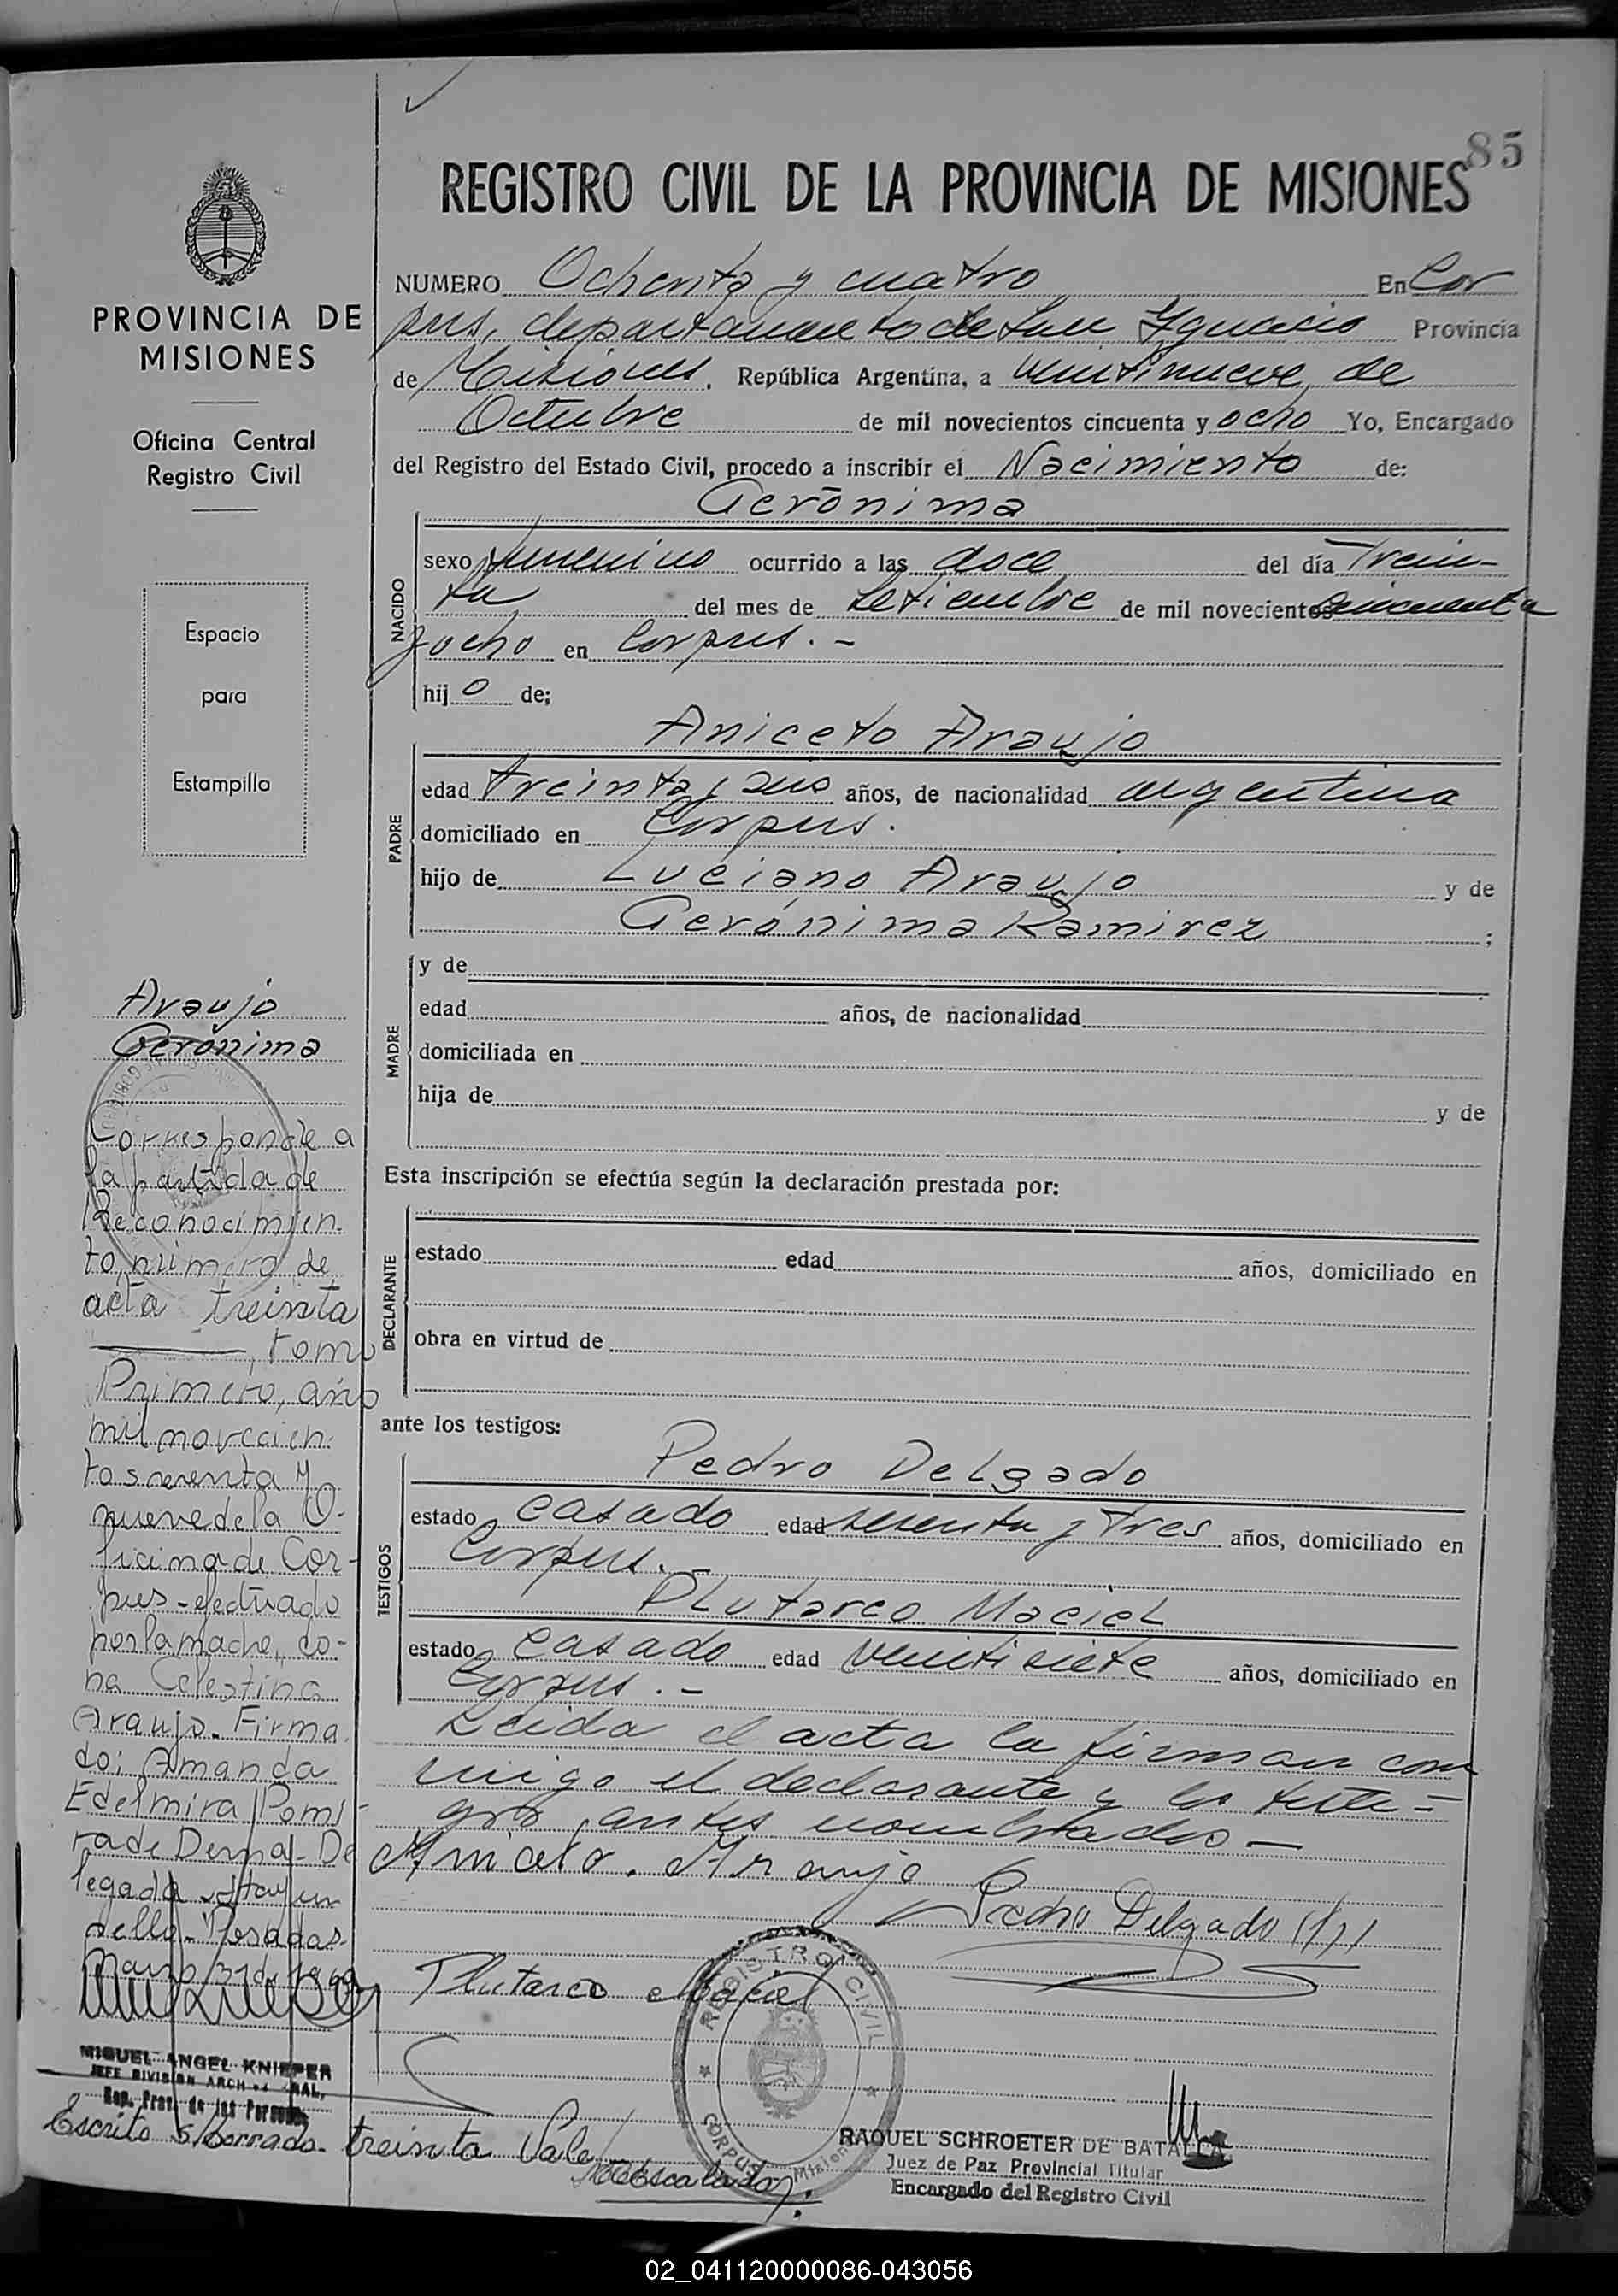 85
REGISTRO CIVIL DE LA PROVINCIA DE MISIONES
PROVINCIA DE
MISIONES
Oficina Central
Registro Civil
Espacio
para
Estampilla
NUMERO Ochenta y cuatro En Cor
pus, departamento de San Ygnacio Provincia
de Misiones, República Argentina, a veintinueve de
Octubre de mil novecientos cincuenta y ocho Yo, Encargado
del Registro del Estado Civil, procedo a inscribir el Nacimiento de:
Gerónima
NACIDO
sexo femenino ocurrido a las doce del día Trein-
ta del mes de Setiembre de mil novecientos cincuenta
y ocho en Corpus. -
hijo de;
Aniceto Araujo
PADRE
edad treinta y seis años, de nacionalidad argentina
domiciliado en Corpus.
hijo de Luciano Araujo y de
Gerónima Ramirez ;
MADRE
y de
edad años, de nacionalidad
domiciliada en
hija de y de
Esta inscripción se efectúa según la declaración prestada por:
DECLARANTE
estado edad años, domiciliado en
obra en virtud de
ante los testigos:
TESTIGOS
Pedro Delgado
estado casado edad sesenta y tres años, domiciliado en
Corpus. -
Plutarco Maciel
estado casado edad veintisiete años, domiciliado en
Corpus. -
Leida el acta la firman con
migo el declarante y los testi-
gos antes nombrados -
Aniceto. Araujo
Pedro Delgado
Plutarco Maciel
REGISTRO CIVIL
CORPUS Misiones
RAQUEL SCHROETER DE BATALLA
Juez de Paz Provincial Titular
Encargado del Registro Civil
Araujo
Gerónima
Corresponde a
la partida de
Reconocimien-
to, número de
acta treinta
, tomo
Primero, año
mil novecien-
tos sesenta y
nueve de la O-
ficina de Cor-
pus - efectuado
por la madre, do-
ña Celestina
Araujo. Firma
do: Amanda
Edelmira Pomi-
ra de Derna - De
legada - Hay un
sello - Posadas
Marzo 31 de 1969
MIGUEL ANGEL KNIEPER
JEFE DIVISION ARCH GRAL,
Reg. Prov. de las Personas
Escrito s/borrado - treinta Vale
02_041120000086-043056